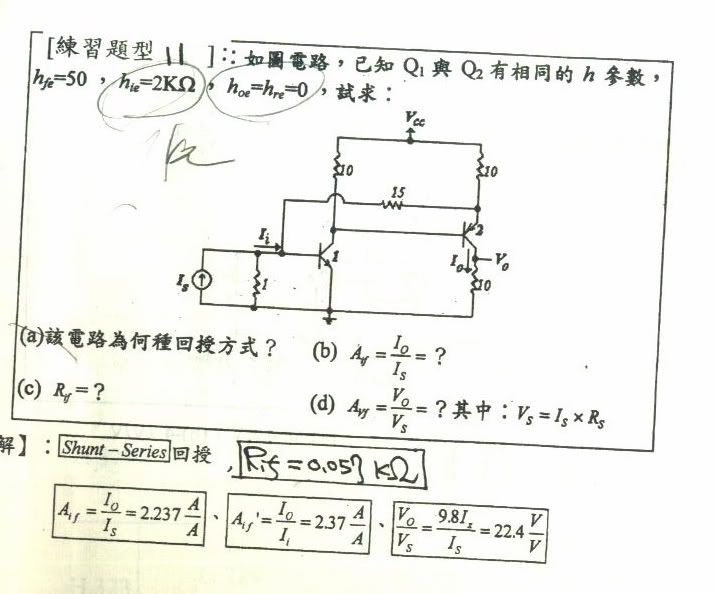 [練習題型 11 ]:: 如圖電路，已知 Q₁ 與 Q₂ 有相同的 h 參數，
h_fe=50 ， h_ie=2KΩ ， h_oe=h_re=0 ，試求：
V_CC
10
10
15
I_i
1
2
I_s
1
I_o
V_o
10
(a)該電路為何種回授方式？ (b) A_if = I_O/I_S = ?
(c) R_if = ? (d) A_vf = V_O/V_S = ? 其中：V_S = I_S × R_S
解】：Shunt－Series 回授 , R_if = 0.057 KΩ
A_if = I_O/I_S = 2.237 A/A 、 A_if' = I_O/I_i = 2.37 A/A 、 V_O/V_S = 9.8I_s/I_S = 22.4 V/V